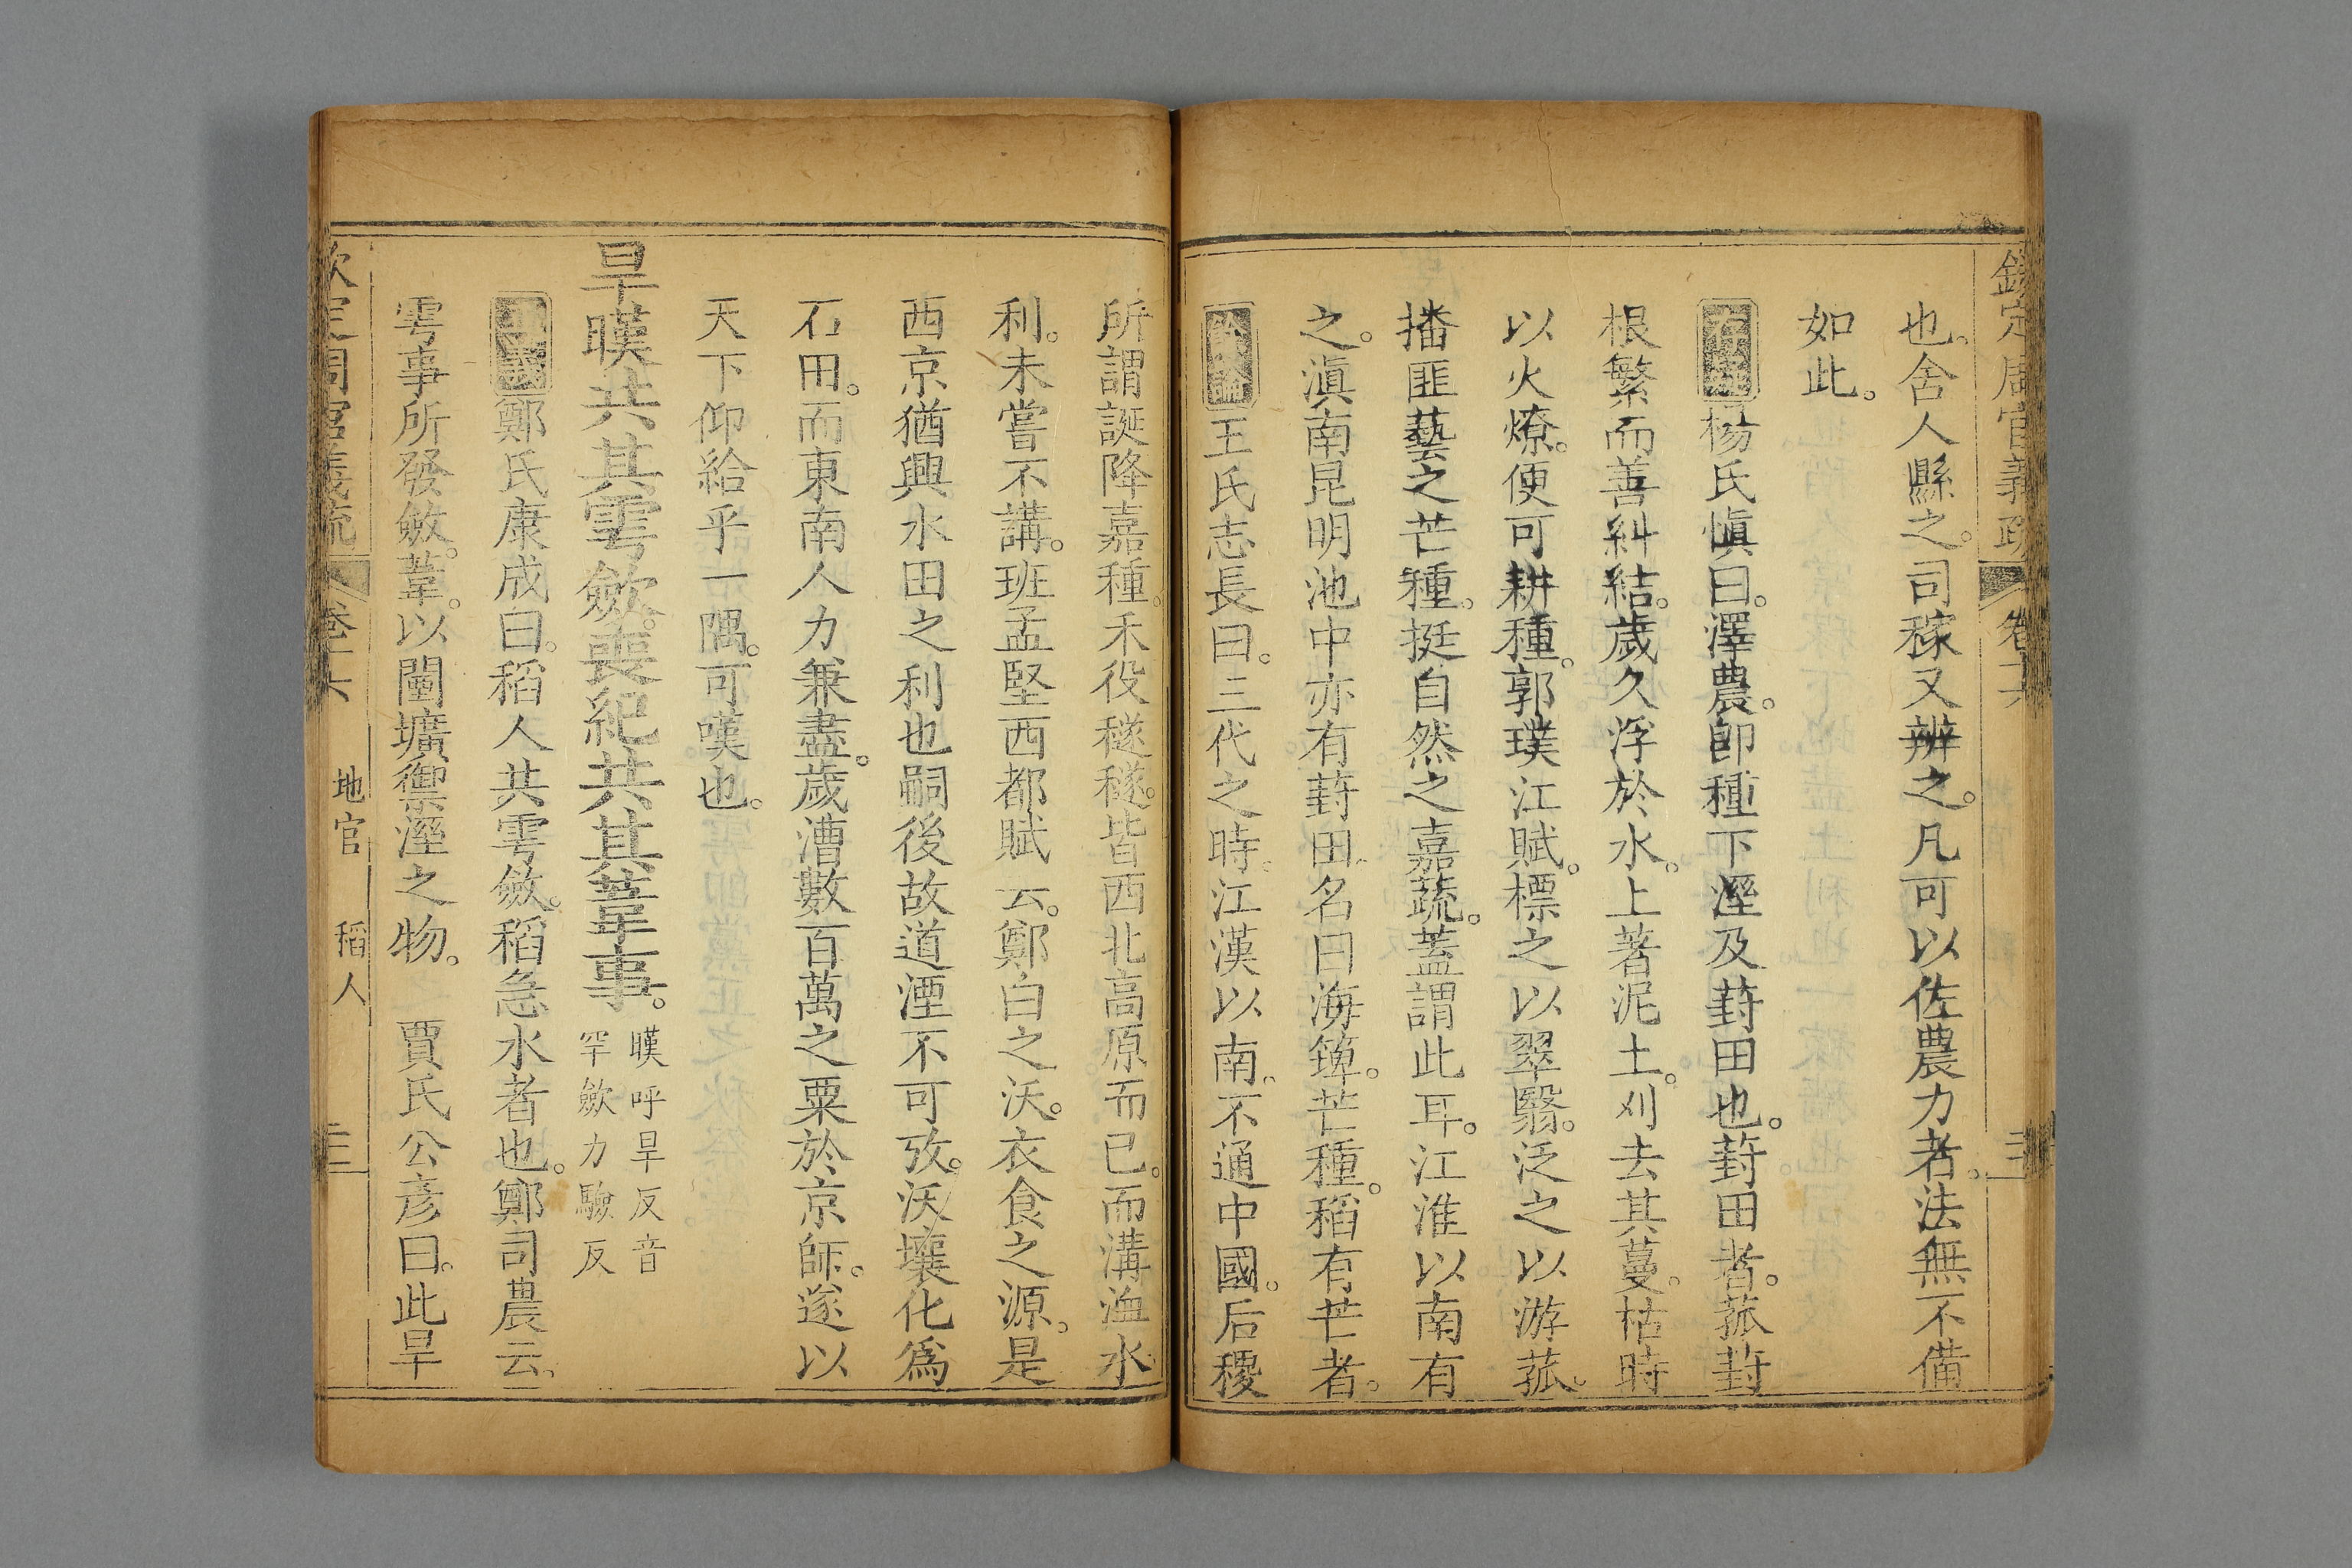 欽定周官義疏 卷十六
也。舍人縣之。司稼又辨之。凡可以佐農力者。法無不備
如此。
存異楊氏慎曰。澤農。卽種下溼及葑田也。葑田者。菰葑
根繁而善糾結。歲久浮於水。上著泥土。刈去其蔓。枯時
以火燎。便可耕種。郭璞江賦。標之以翠翳。泛之以游菰。
播匪藝之芒種。挺自然之嘉蔬。蓋謂此耳。江淮以南有
之。滇南昆明池中亦有葑田。名曰海簰。芒種。稻有芒者。
餘論王氏志長曰。三代之時。江漢以南。不通中國。后稷
所謂誕降嘉種。禾役穟穟。皆西北高原而已。而溝洫水
利。未嘗不講。班孟堅西都賦云。鄭白之沃。衣食之源。是
西京猶興水田之利也嗣後故道湮不可攷。沃壤化為
石田。而東南人力兼盡。歲漕數百萬之粟於京師。遂以
天下仰給乎一隅。可嘆也。
旱暵共其雩斂。喪紀共其葦事。暵呼旱反音
罕斂力驗反
鄭氏康成曰。稻人共雩斂。稻急水者也。鄭司農云。
雩事所發斂。葦。以闉壙禦溼之物。 賈氏公彥曰。此旱
欽定周官義疏 卷十六 地官 稻人